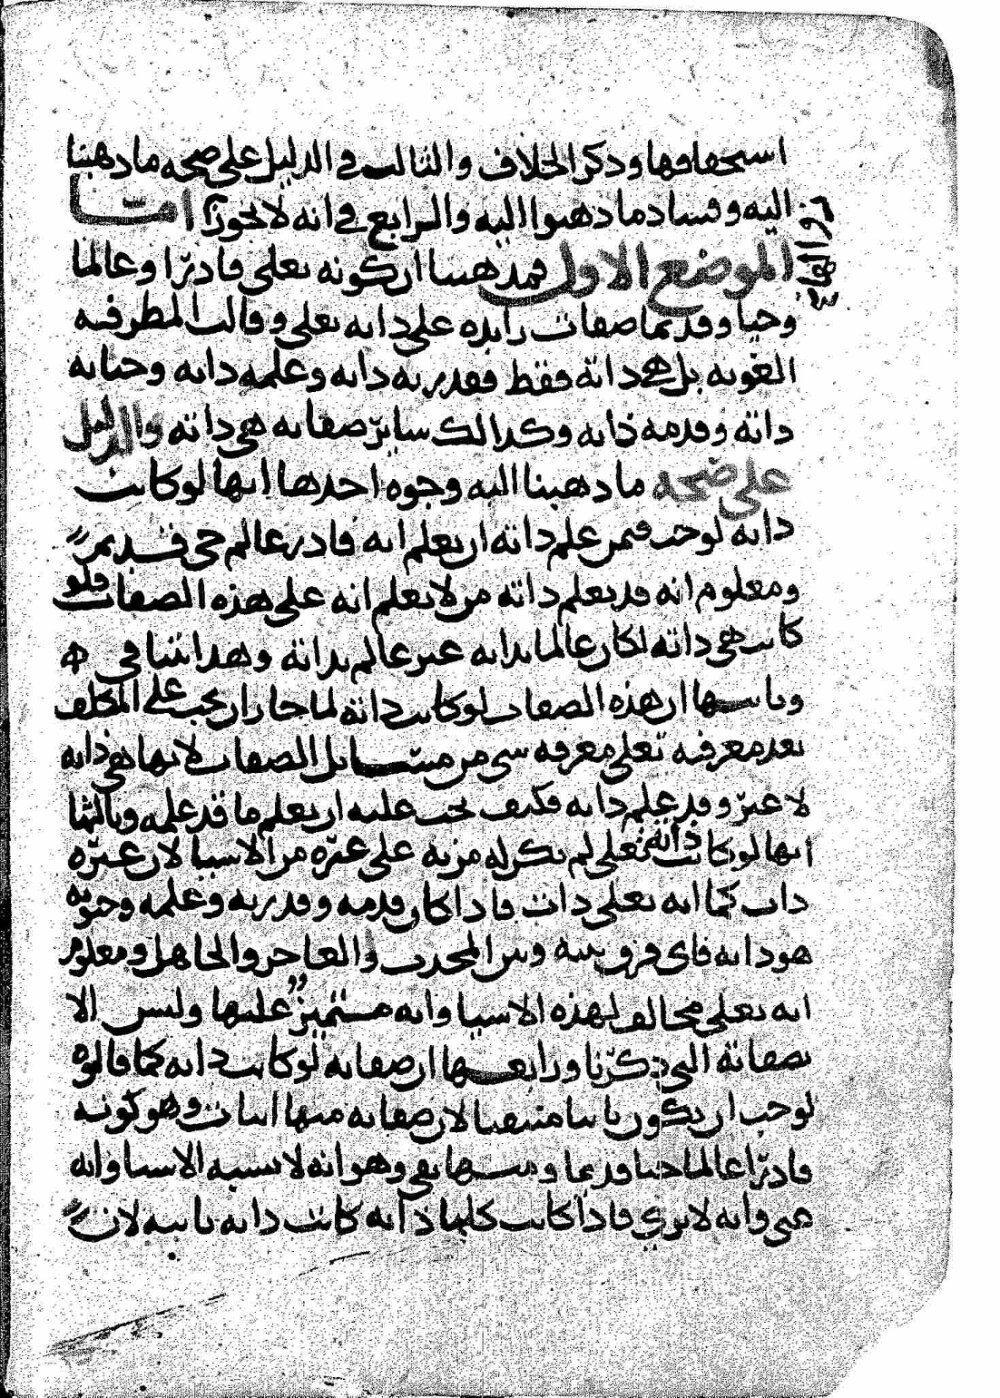 استحقاقها وذكر الخلاف والثالث في الدليل على صحه ما ذهبنا
اليه وفساد ما ذهبوا اليه والرابع في انه لا يجوز اما
الموضع الاول فمذهبنا ان كونه تعلى قادرا وعالما
وحيا وقديما صفات زايده على ذاته تعلى وقالت المطرفيه
الغويه بل هي ذاته فقط فقدرته ذاته وعلمه ذاته وحياته
ذاته وقدمه ذاته وكذالك سائر صفاته هي ذاته والدليل
على صحه ما ذهبنا اليه وجوه احدها انها لو كانت
ذاته لوجب فيمن علم ذاته ان يعلم انه قادر عالم حي قديم
ومعلوم انه قد يعلم ذاته من لا يعلم انه على هذه الصفات فلو
كانت هي ذاته لكان عالما بذاته غير عالم بذاته وهذا يتنافى
وثانيها ان هذه الصفات لو كانت ذاته لما جاز ان يجب على المكلف
بعد معرفته تعلى معرفه شي من مسائل الصفات لانها هي ذاته
لا غير وقد علم ذاته فكيف يجب عليه ان يعلم ما قد علمه وثالثها
انها لو كانت ذاته تعلى لم يكن له مزيه على غيره من الاشيا لان غيره
ذات كما انه تعلى ذات فاذا كان قدمه وقدرته وعلمه وحيوته
هو ذاته فاي فرق بينه وبين المحدث والعاجز والجاهل ومعلوم
انه تعلى مخالف لهذه الاشيا وانه متميز عليها وليس الا
بصفاته التي ذكرنا ورابعها ان صفاته لو كانت ذاته كما قالوه
لوجب ان يكون ثابتا منتفيا لان صفاته منها اثبات وهو كونه
قادرا عالما حيا قديما ومنها نفي وهو انه لا يشبه الاشيا وانه
غني وانه لا يرى فاذا كانت كلها ذاته كانت ذاته ثابته لان